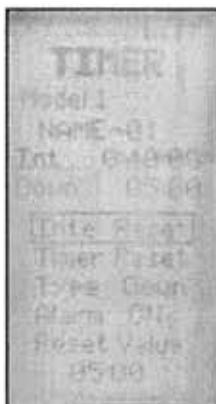 TIMER
Model1
NAME-01
Int 0:40:09
Down 05:00
Inte Reset
Timer Reset
Type Down
Alarm ON
Reset Value
05:00